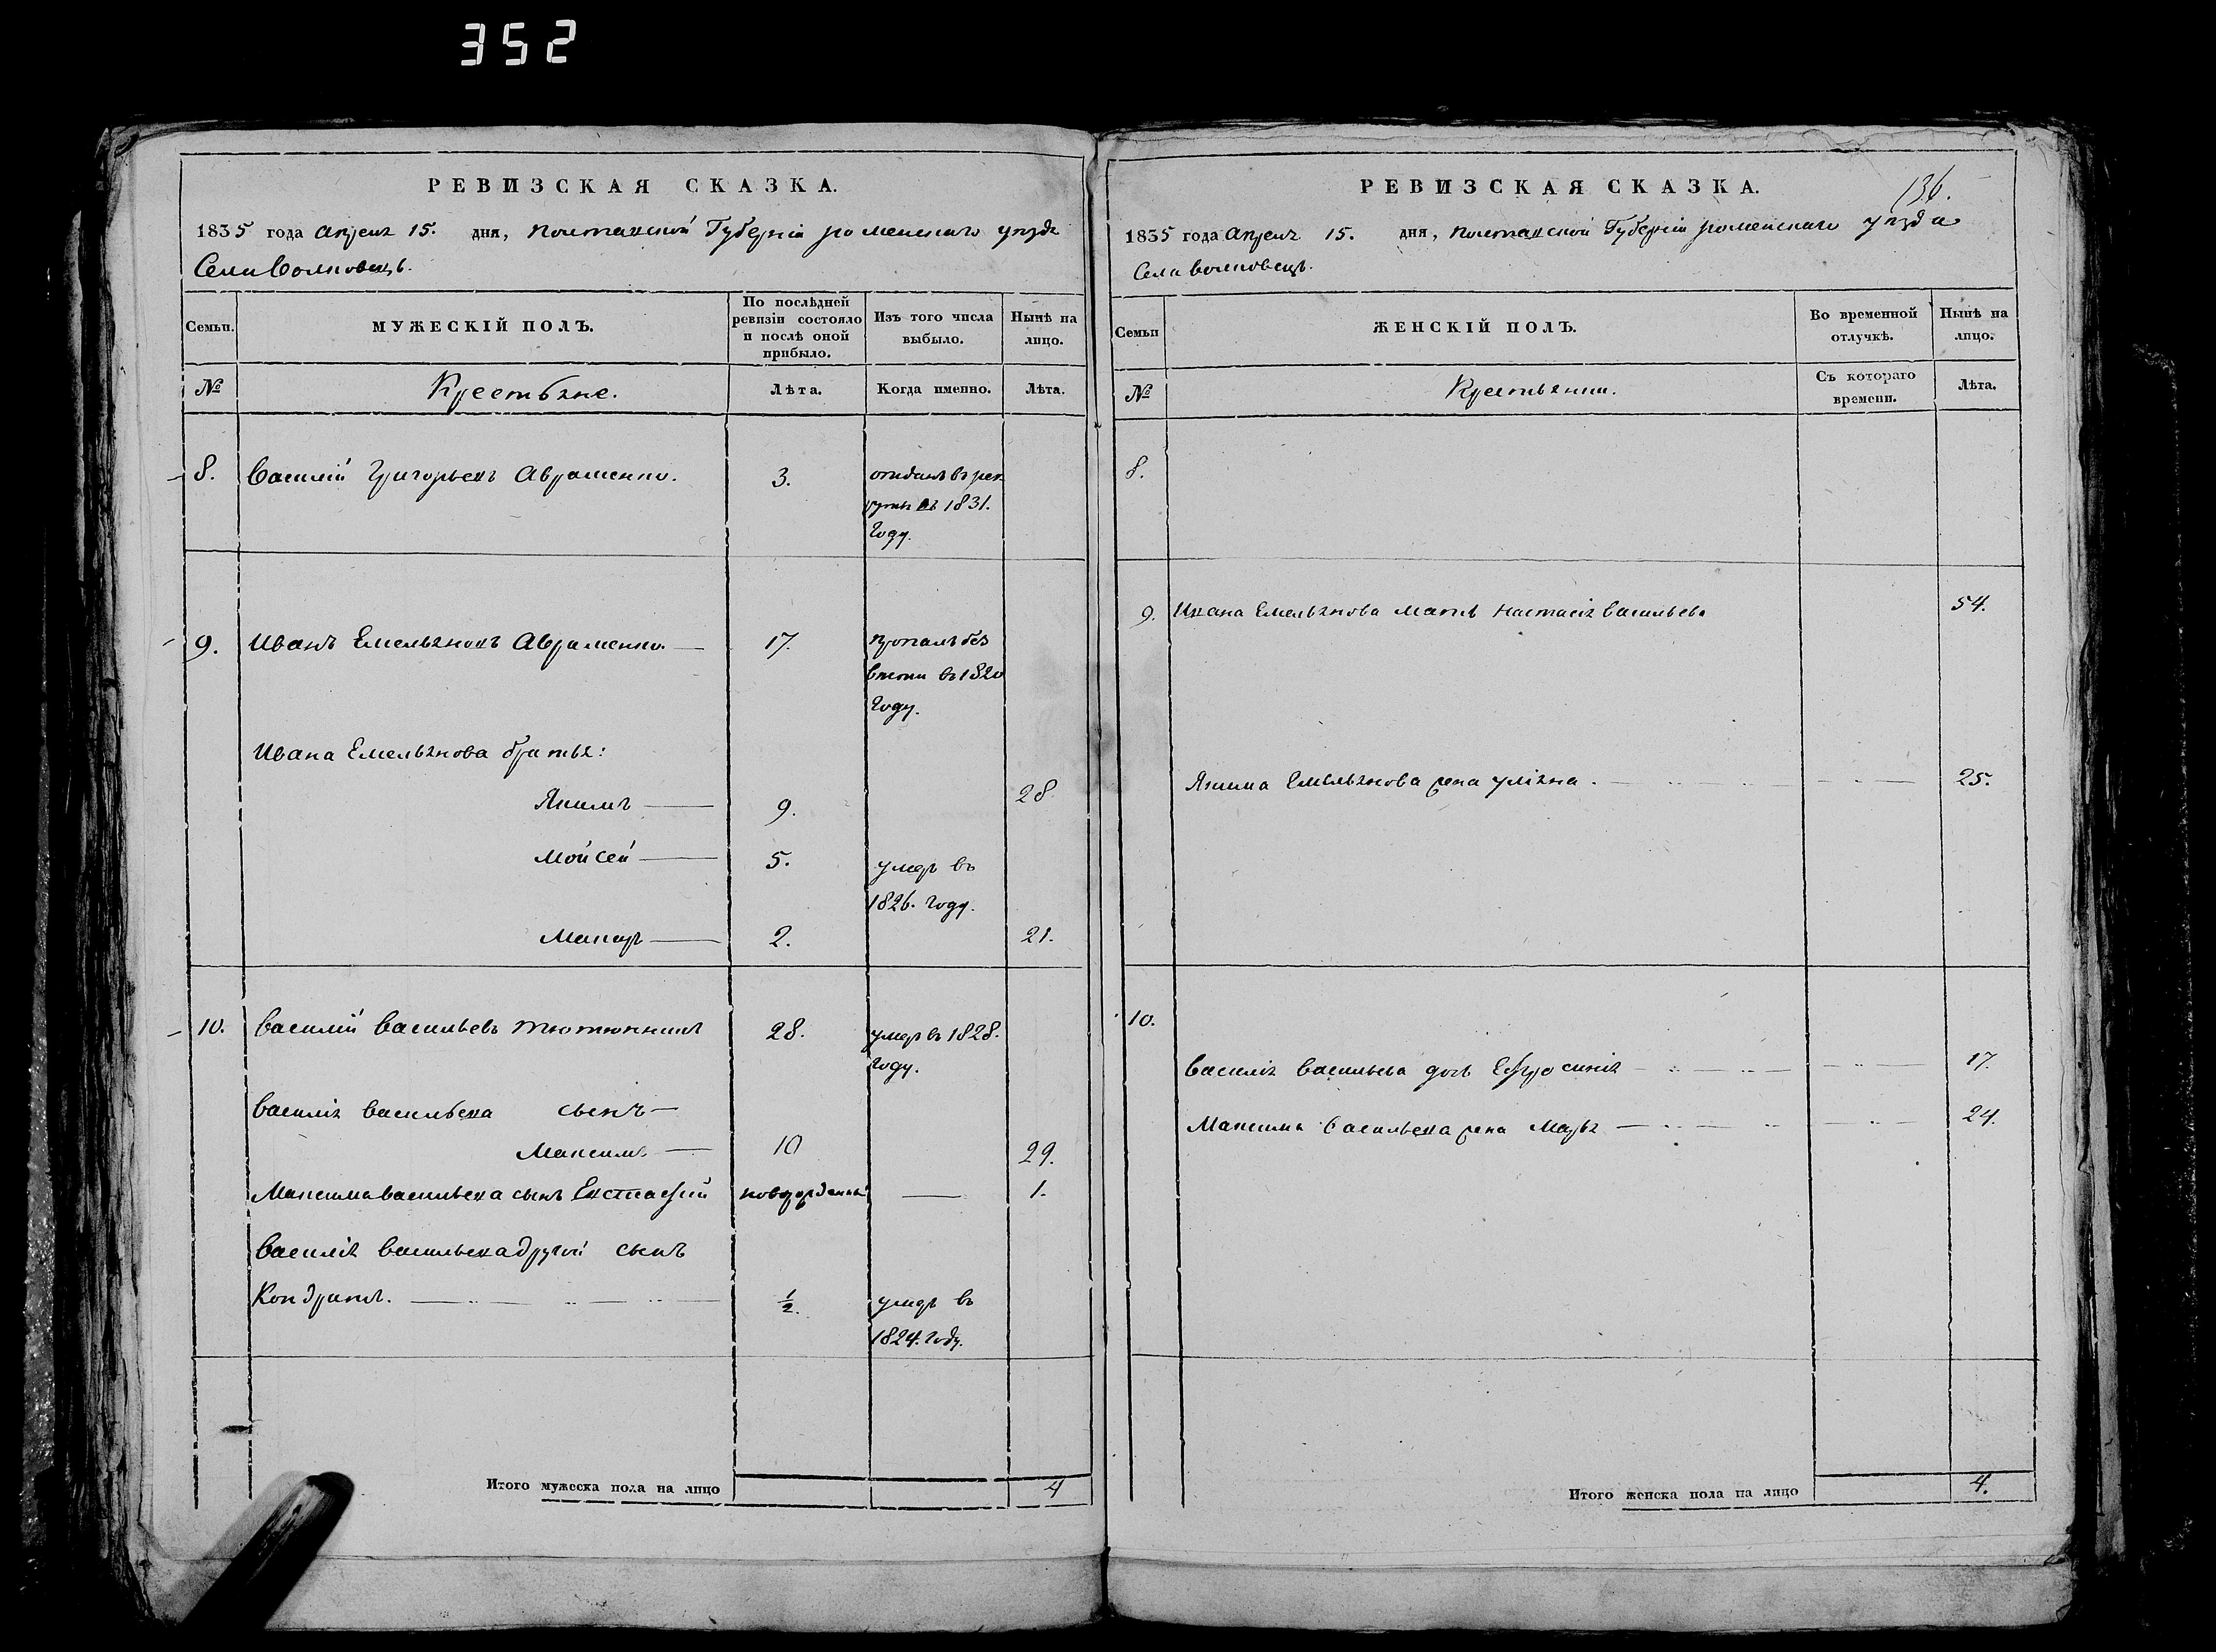 352
РЕВИЗСКАЯ СКАЗКА.
1835 года Апреля 15. дня, Полтавской Губерніи роменскаго уезда
Села Волковець.
Семьи.
МУЖЕСКІЙ ПОЛЪ.
По послѣдней ревизіи состояло и послѣ оной прибыло.
Изъ того числа выбыло.
Нынѣ на лицо.
№
Крестьяне.
Лѣта.
Когда именно.
Лѣта.
8. Василий Григорьевъ Авраменко. 3. отданъ въ рек
руты въ 1831.
Году.
9. Иванъ Емельяновъ Авраменко. 17. пропалъ без
вести въ 1820
Году.
Ивана Емельянова братья:
Якимъ 9. 28
Мойсей 5. умеръ въ
1826. Году.
Макаръ 2. 21.
10. Василий Васильевъ Тютюнникъ 28. умеръ въ 1828.
Году.
Василія Васильева сынъ
Максимъ 10 29.
Максима Васильева сынъ Евстафий новорожденный 1.
Василія Васильева другой сынъ
Кондратъ. ½. умеръ въ
1824. Году.
Итого мужеска пола на лицо 4
136.
РЕВИЗСКАЯ СКАЗКА.
1835 года Апреля 15. дня, Полтавской Губерніи роменскаго уезда
Села Волковець.
Семьи
ЖЕНСКІЙ ПОЛЪ.
Во временной отлучкѣ.
Нынѣ на лицо.
№
Крестьянки.
Съ котораго времени.
Лѣта.
8.
9. Ивана Емельянова мать Настасія Васильева 54.
Якима Емельянова жена Уліяна. 25.
10.
Василія Васильева дочь Ефросинія 17.
Максима Васильева жена Марья 24.
Итого женска пола на лицо 4.